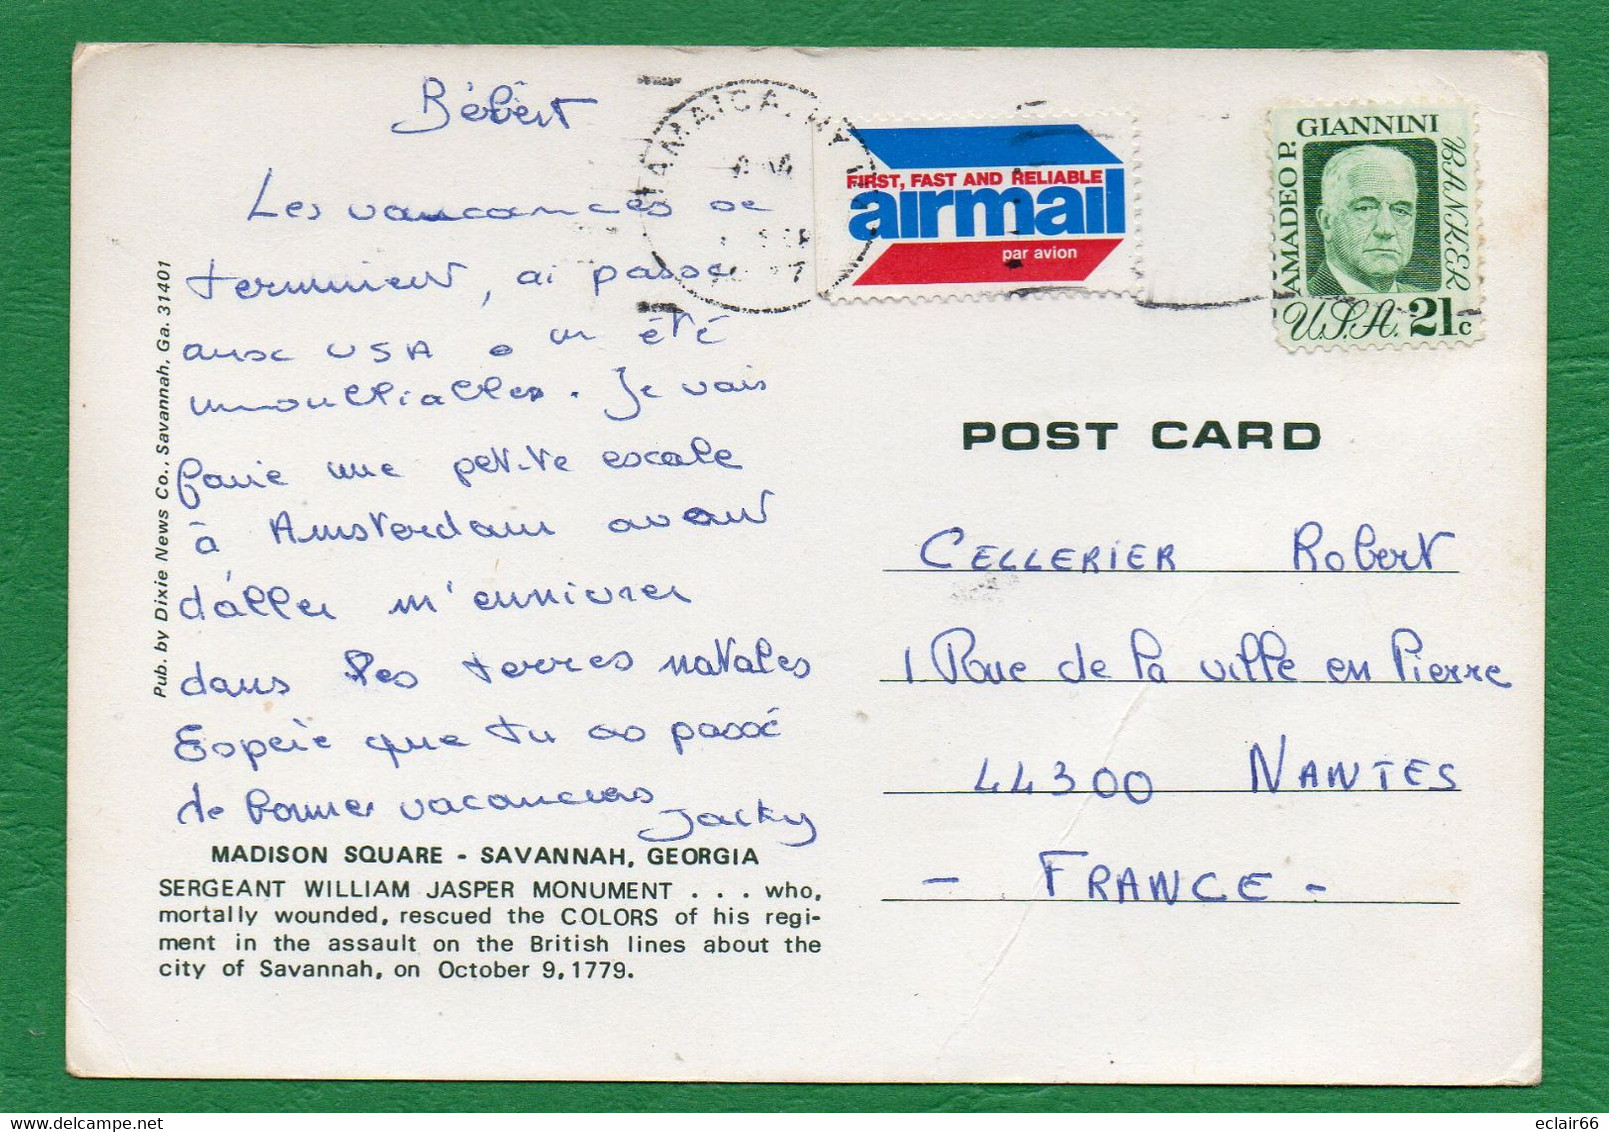 Bébert
Les vaucances se
terminent, ai passé
aux USA un été
inoubliables. Je vais
faire une petite escale
à Amsterdam avant
d'aller m'ennivrer
dans les terres natales
Espère que tu as passé
de bonnes vacances
Jacky
MADISON SQUARE - SAVANNAH, GEORGIA
SERGEANT WILLIAM JASPER MONUMENT . . . who,
mortally wounded, rescued the COLORS of his regi-
ment in the assault on the British lines about the
city of Savannah, on October 9, 1779.
Pub. by Dixie News Co., Savannah, Ga. 31401
JAMAICA, NY
AM
SEP
FIRST, FAST AND RELIABLE
airmail
par avion
AMADEO P.
GIANNINI
BANKER
U.S.A. 21c
POST CARD
CELLERIER Robert
1 Rue de la ville en Pierre
44300 NANTES
- FRANCE -
eclair66